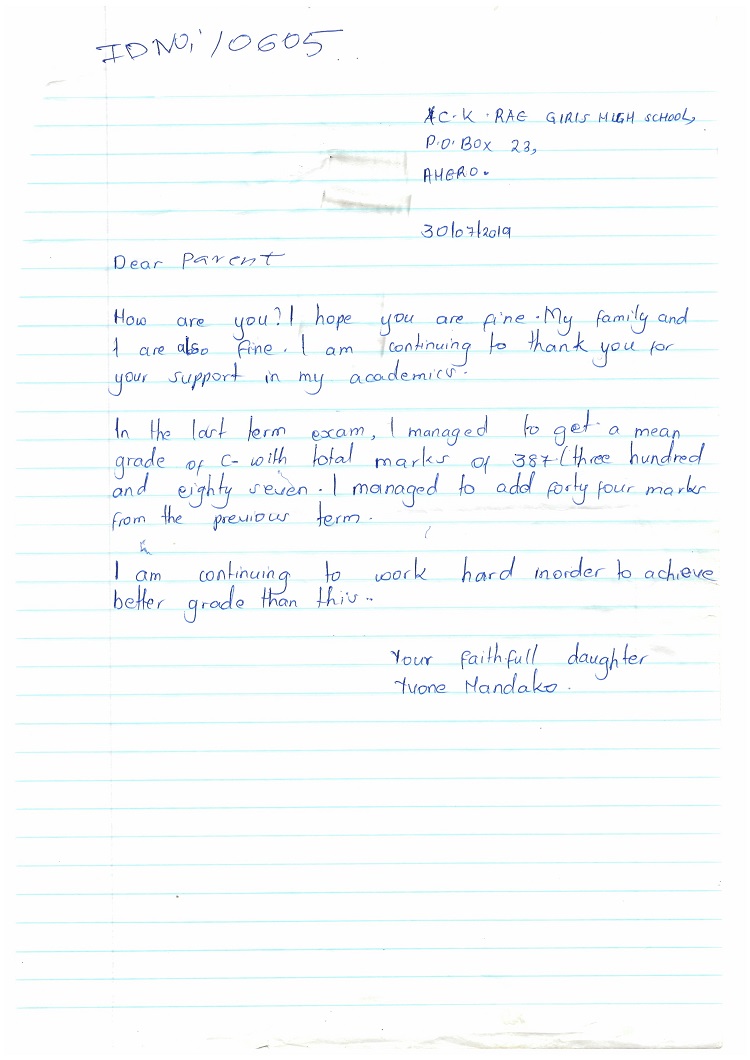 IDNO; 10605
A.C.K. RAE GIRLS HIGH SCHOOL,
P.O. BOX 23,
AHERO.
30/07/2019
Dear Parent
How are you? I hope you are fine. My family and
I are also fine. I am continuing to thank you for
your support in my academics.
In the last term exam, I managed to get a mean
grade of C- with total marks of 387 (three hundred
and eighty seven. I managed to add forty four marks
from the previous term.
I am continuing to work hard inorder to achieve
better grade than this..
Your faithfull daughter
Yvone Mandako.